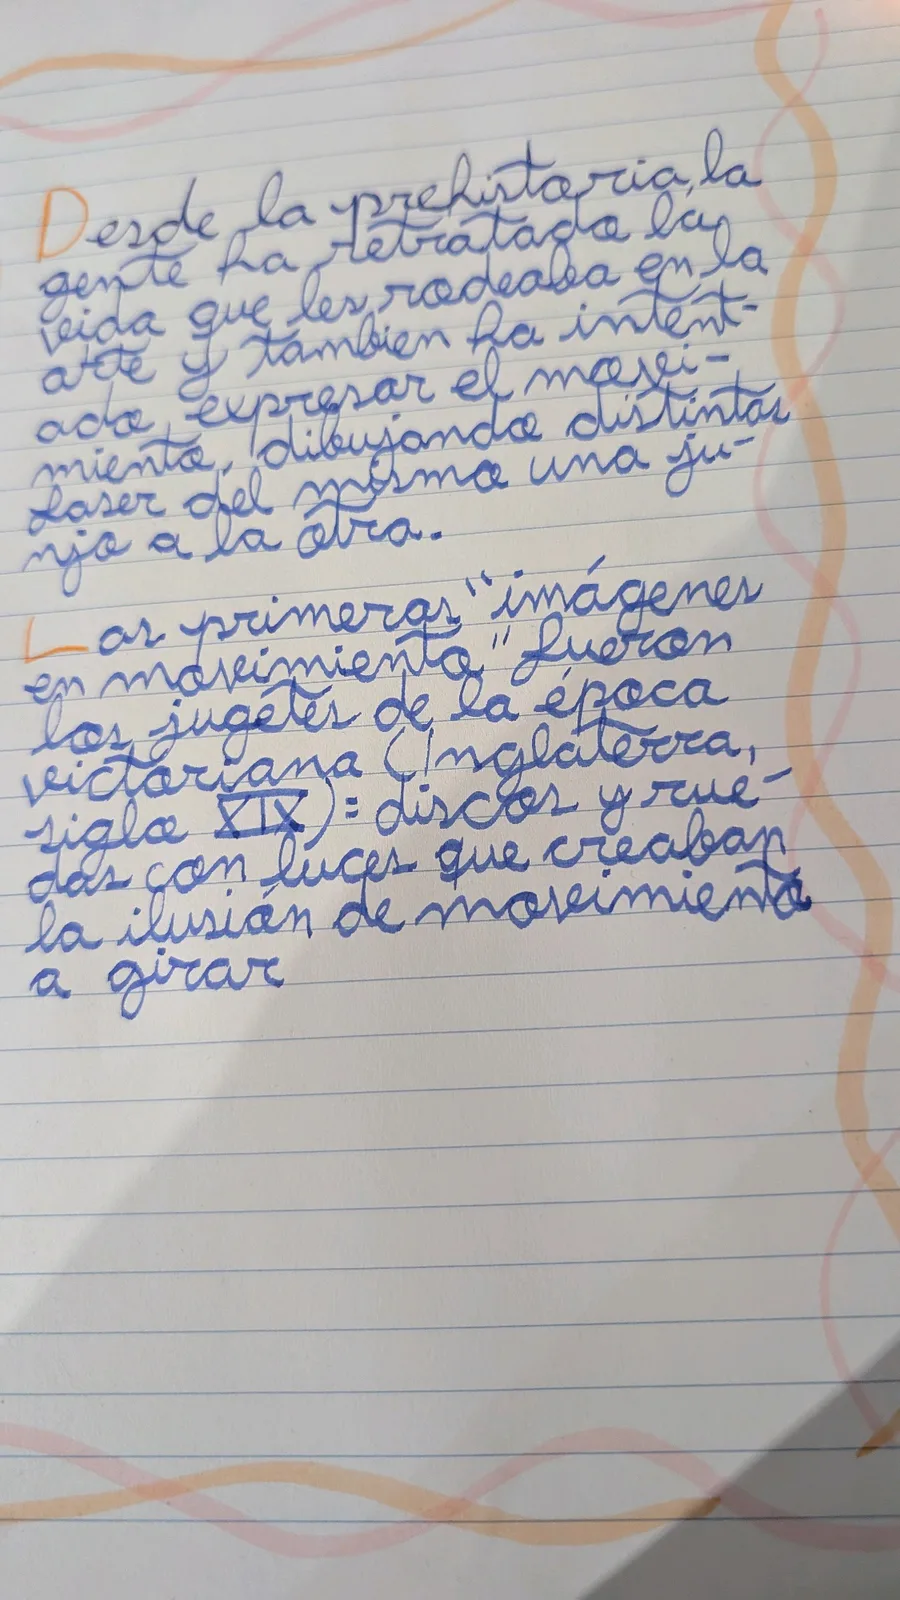 Desde la prehistoria, la
gente ha retratado la
vida que les rodeaba en la
arte y tambien ha intent-
ado expresar el movi-
miento, dibujando distintas
fases del mismo una ju-
njo a la otra.
Las primeras "imágenes
en movimiento" fueron
los jugetes de la época
victoriana (Inglaterra,
siglo XIX): discos y rue-
das con luces que creaban
la ilusión de movimiento
a girar